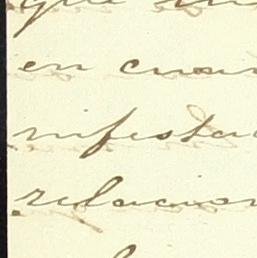 que
en cuan
nifesta
relacion